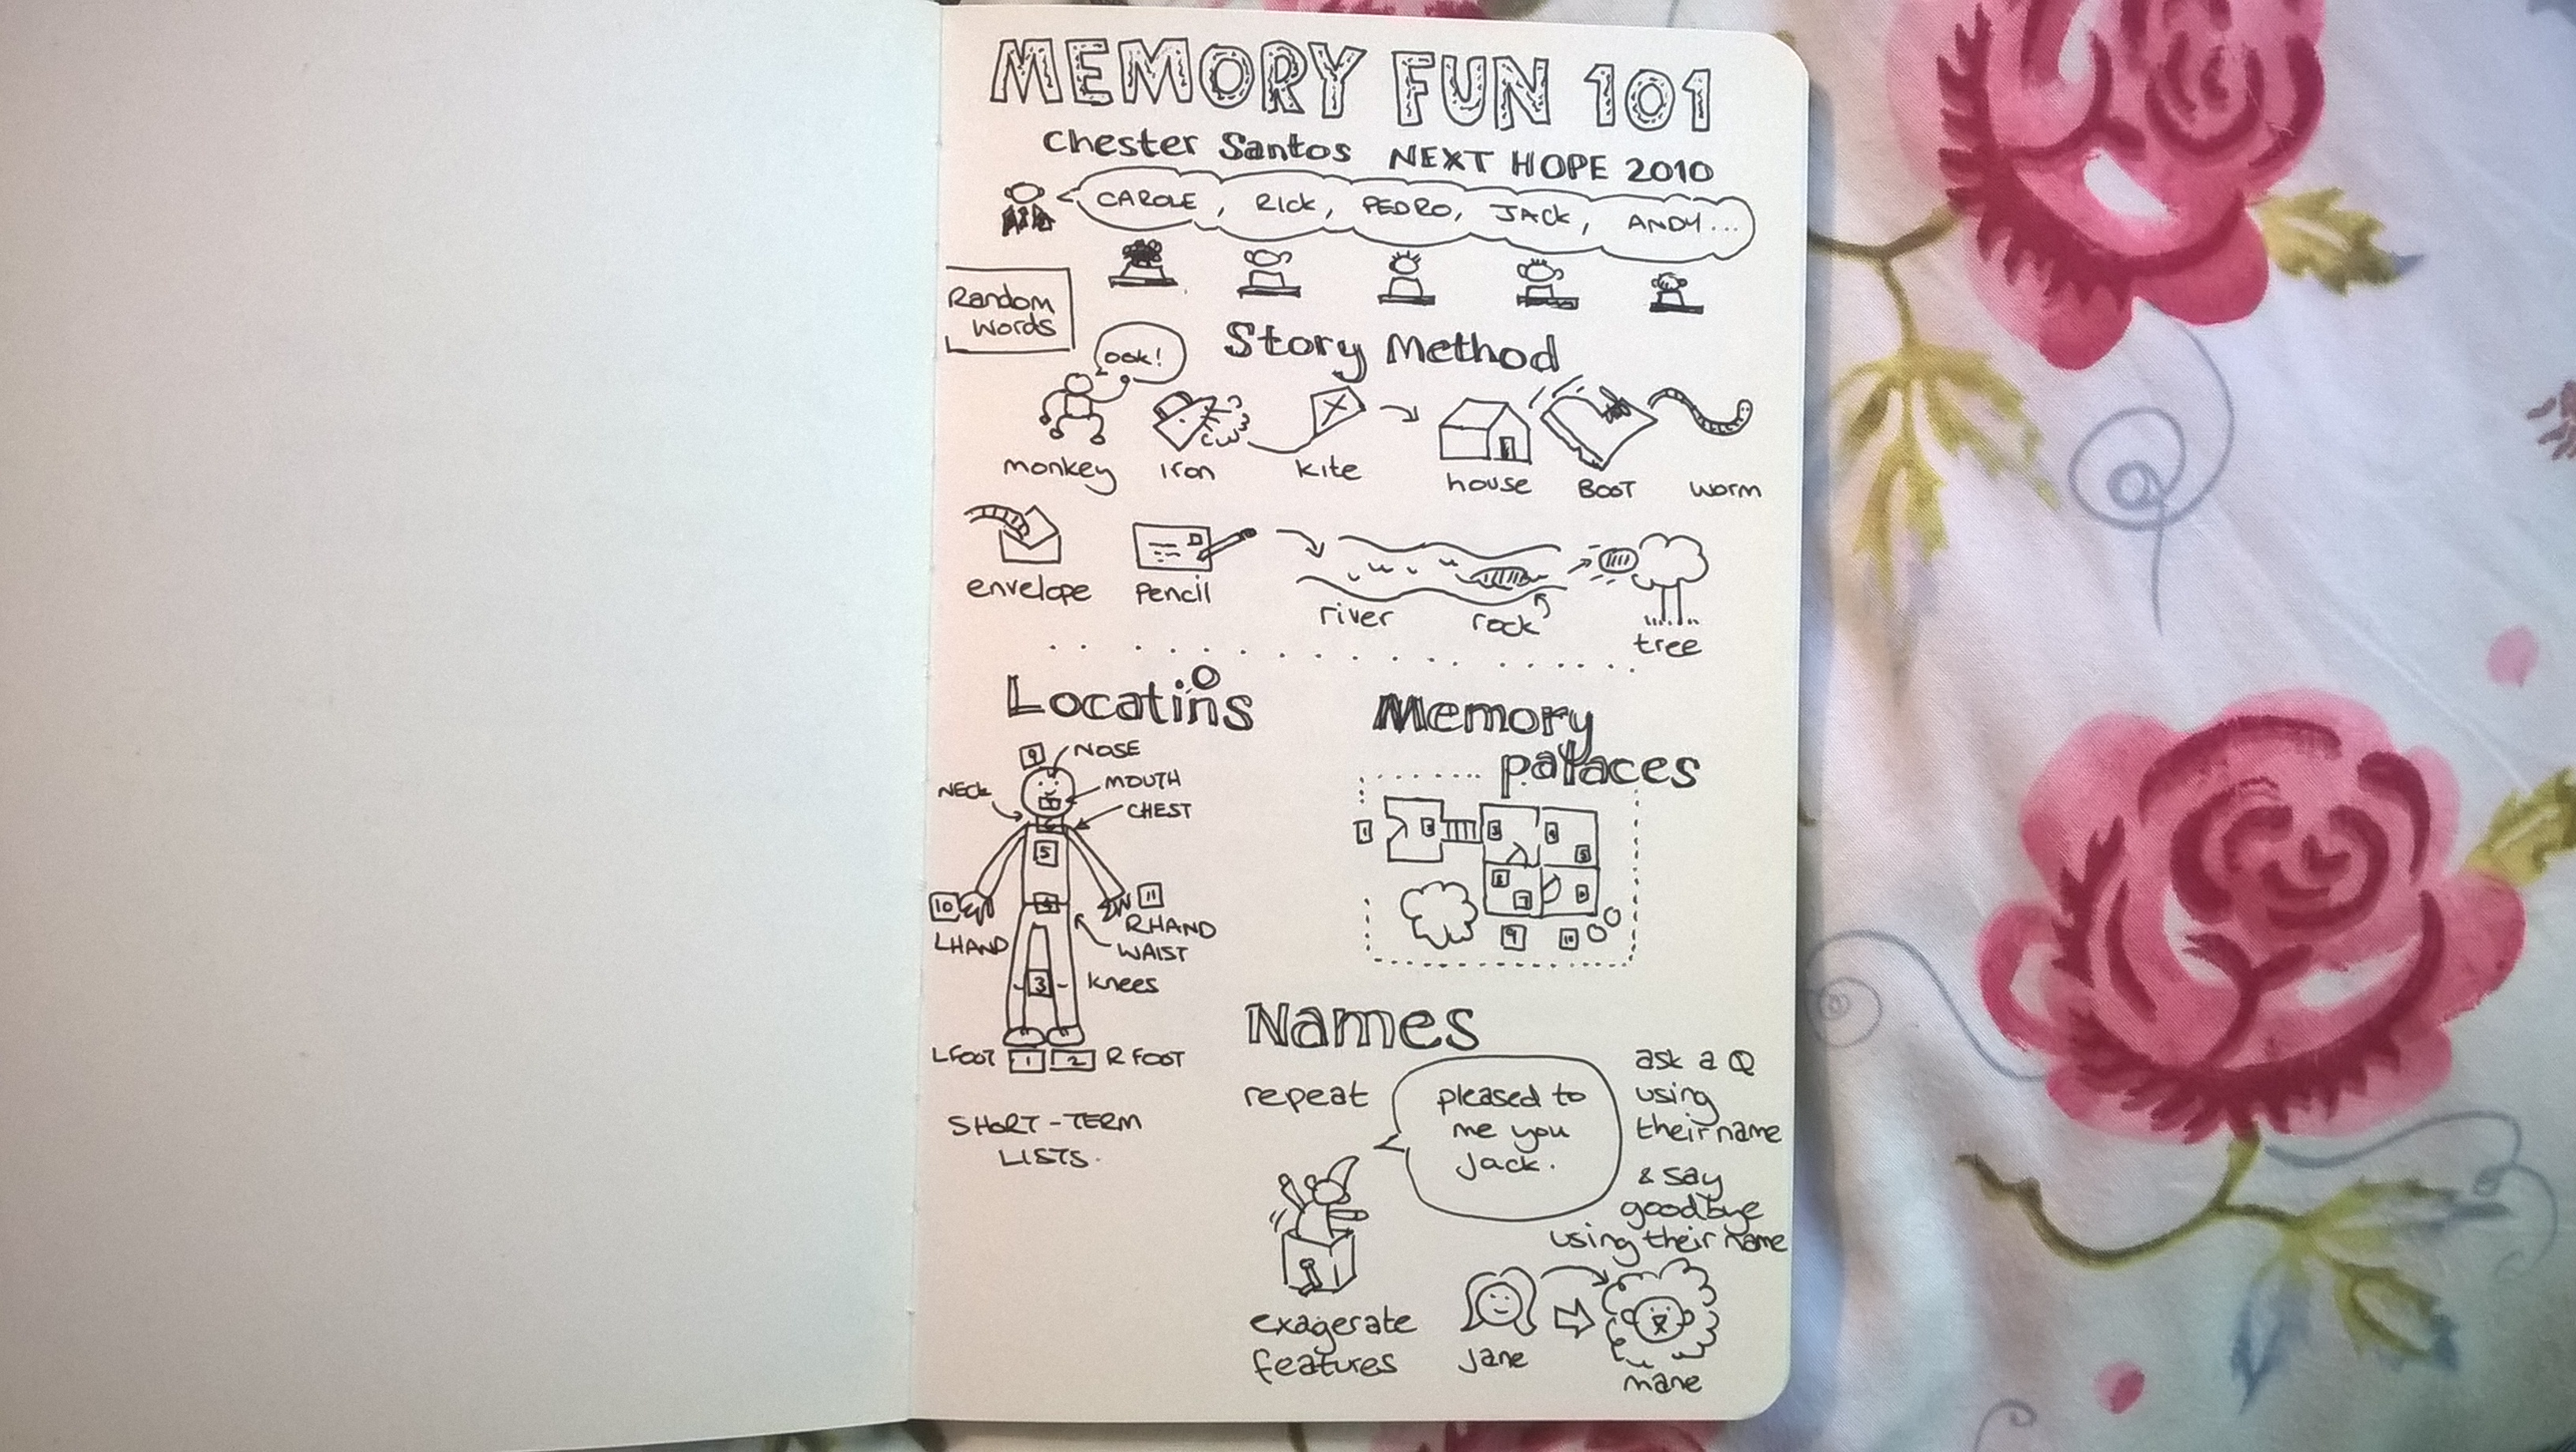 MEMORY FUN 101
Chester Santos NEXT HOPE 2010
CAROLE, RICK, PEDRO, JACK, ANDY...
Random
Words
ook!
Story Method
monkey iron kite house BOOT worm
envelope pencil river rock tree
Locatins
o
9 NOSE
NECK
MOUTH
CHEST
5
10 11
LHAND
RHAND
WAIST
3 knees
L FOOT 1 2 R FOOT
SHORT-TERM
LISTS.
Memory
palaces
1 3 4
5
7
9 10
Names
repeat
pleased to
me you
Jack.
ask a Q
using
their name
& say
goodbye
using their name
exagerate
features
Jane
mane